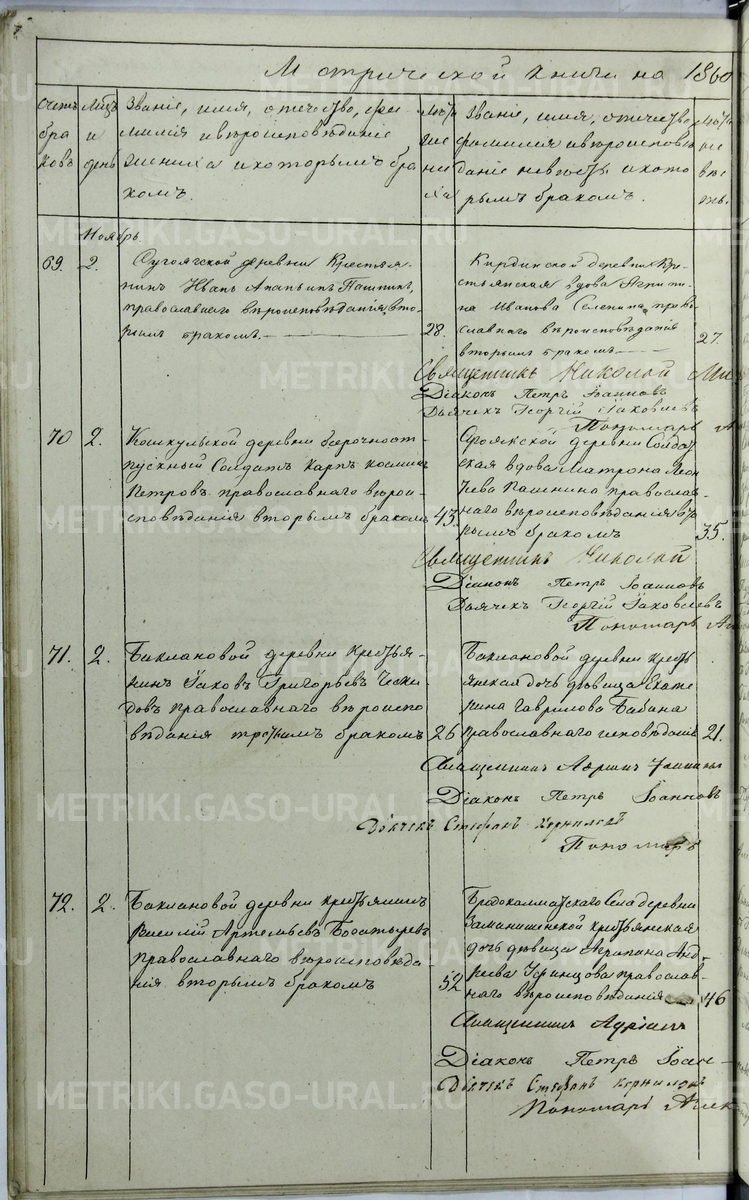 Метрической книги на 1860
Счетъ браковъ
Мѣсяцъ и день
Званіе, имя, отечество, фа-
милія и вѣроисповѣданіе
жениха и которымъ бра
комъ.
Званіе, имя, отечество,
фамилія и вѣроисповѣ
даніе невѣсты и кото
рымъ бракомъ.
Ноябрь
69. 2.
деревни Крестья-
нинъ Иванъ Ананьинъ Пашнинъ,
православнаго вѣроисповѣданія, вто-
рымъ бракомъ.
28.
Кирдинской деревни Кре-
стьянская вдова
на Иванова Селенина, право-
славнаго вѣроисповѣданія
вторымъ бракомъ
27.
Священникъ Николай
Діаконъ Петръ Іоанновъ
Дьячекъ Георгій Іаковлевъ
Пономарь
70 2.
Кошкульской деревни безсрочноот-
пускный Солдатъ Карпъ Косминъ
Петровъ православнаго вѣрои-
сповѣданія вторымъ бракомъ
43.
деревни Солдат
ская вдова Матрона Леон
тіева Пашнина православ-
наго вѣроисповѣданія вто
рымъ бракомъ
35.
Священникъ Николай
Діаконъ Петръ Іоанновъ
Дьячекъ Георгій Іаковлевъ
Пономарь
71. 2.
Баклановой деревни крестья-
нинъ Іаковъ Григорьевъ
православнаго вѣроиспо
вѣданія третьимъ бракомъ
26
Баклановой деревни кресть
янская дочь дѣвица Екате
рина Гаврилова Бабина
православнаго исповѣданія
21.
Священникъ
Діаконъ Петръ Іоанновъ
Дьячекъ Стефанъ Корниловъ
Пономарь
72. 2.
Баклановой деревни крестьянинъ
Василій Артемьевъ Богатыревъ
православнаго вѣроисповѣда-
нія вторымъ бракомъ
52
Бродокалматскаго Села деревни
крестьянская
дочь дѣвица Агрипина Анд-
реева православ-
наго вѣроисповѣданія
46
Священникъ Адріанъ
Діаконъ Петръ Іоан-
Дьячекъ Стефанъ Корниловъ
Пономарь Алек
METRIKI.GASO-URAL.RU